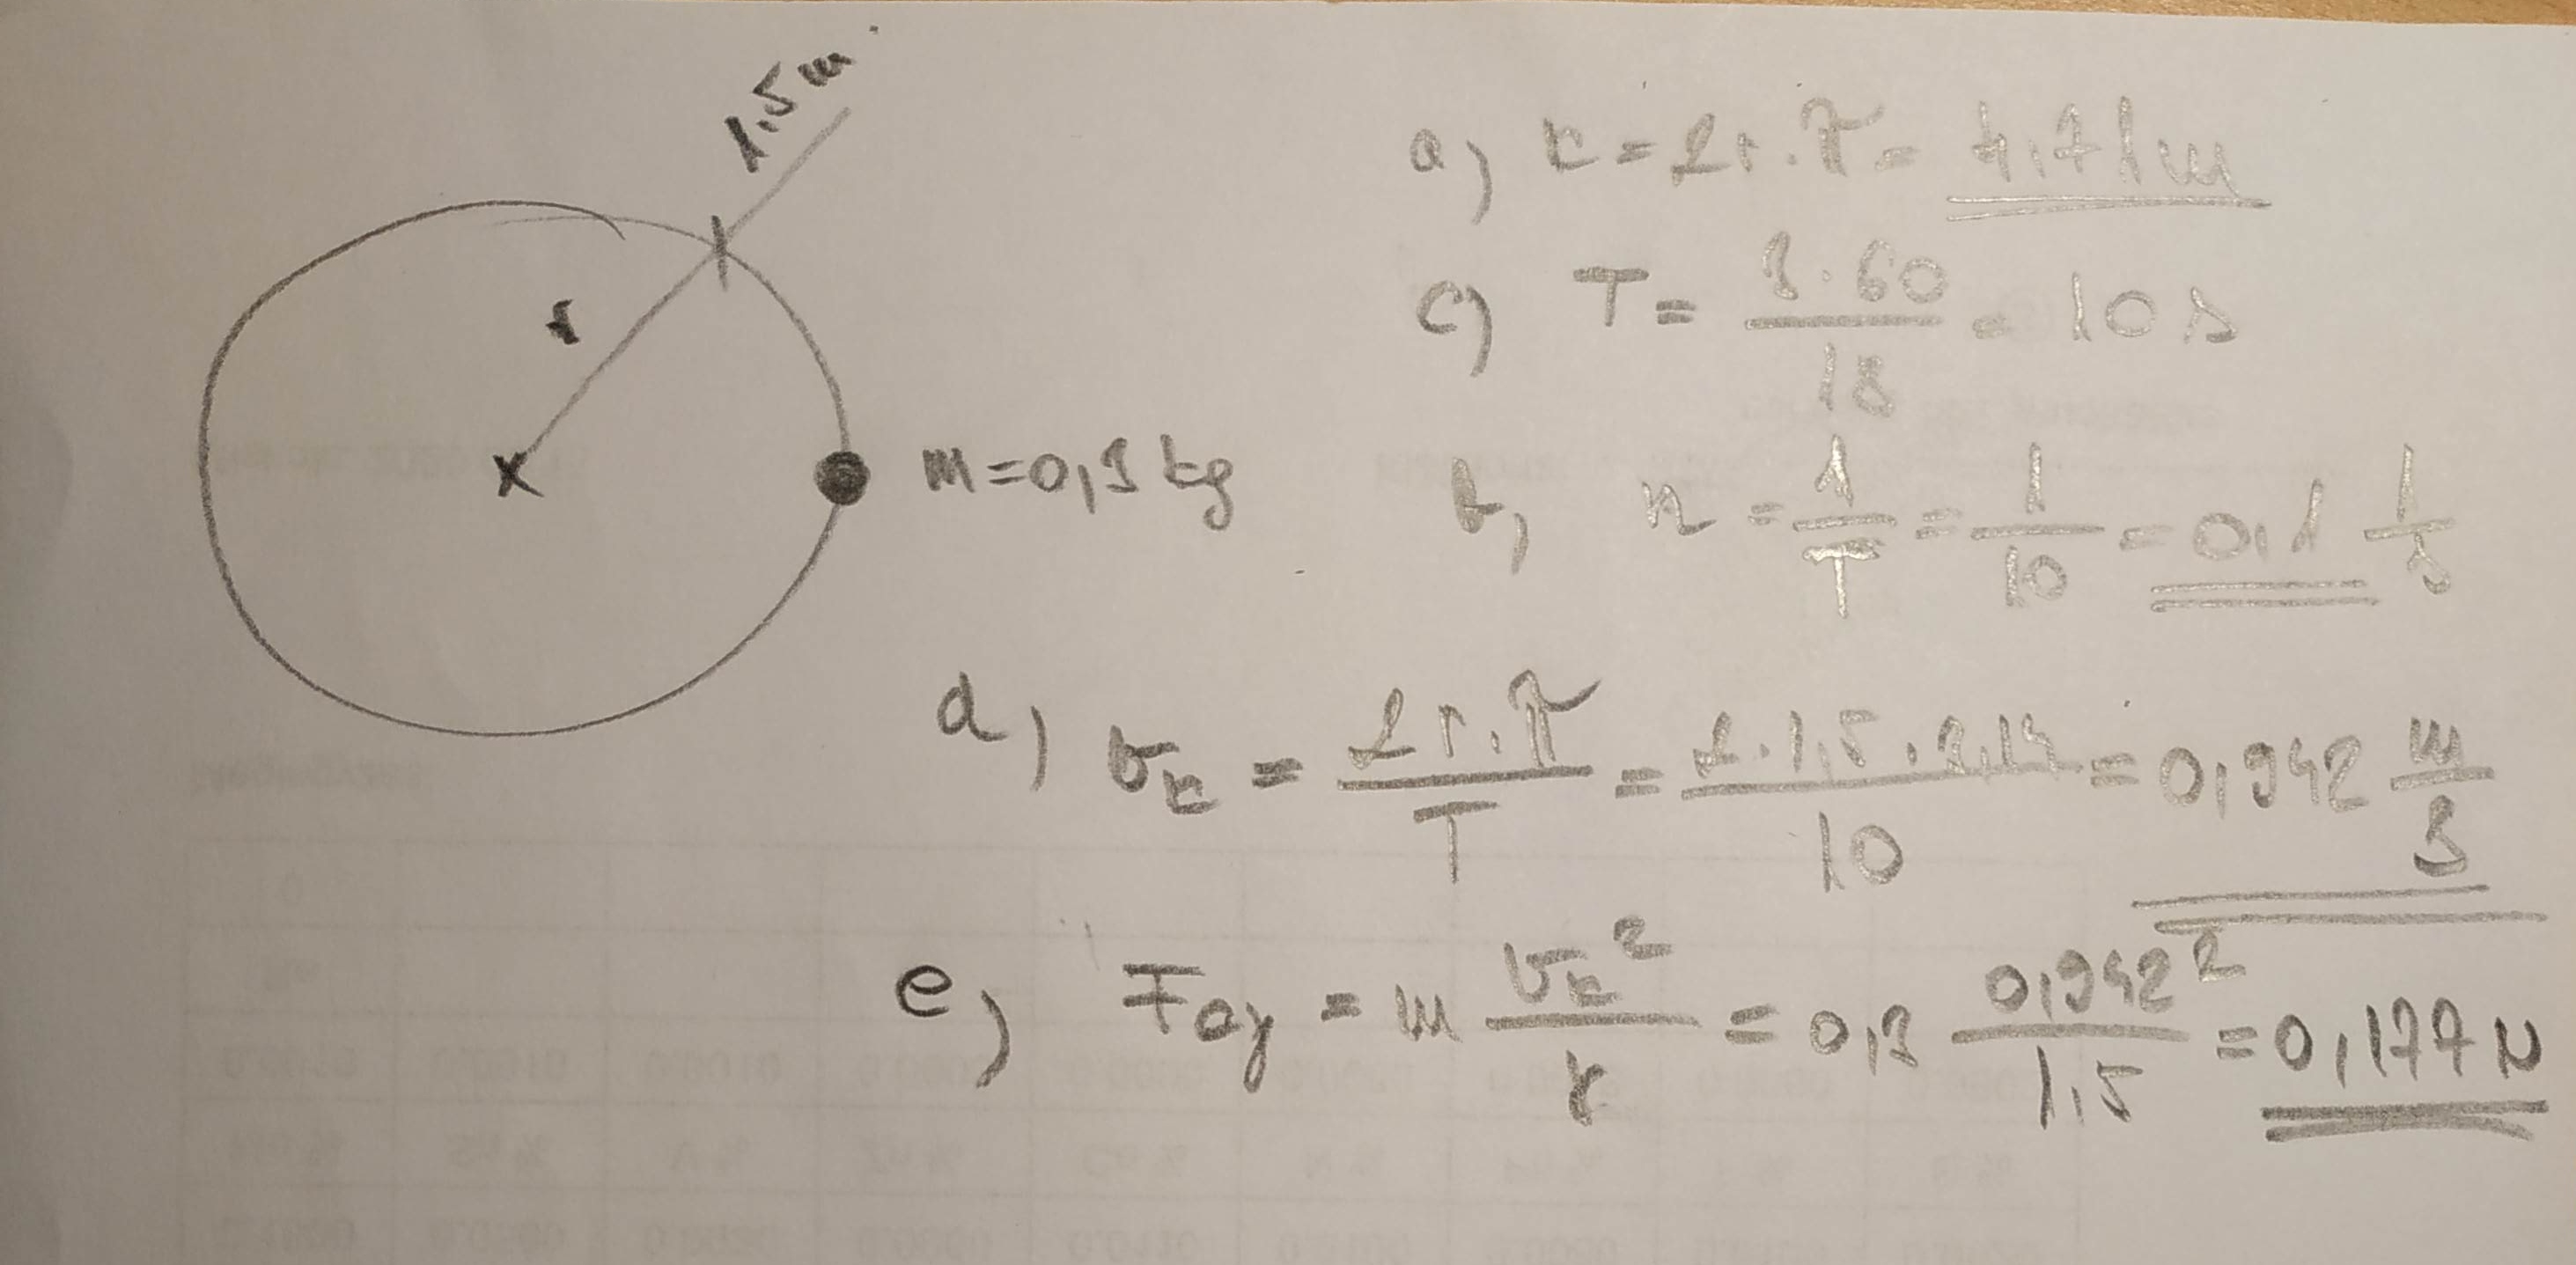 1,5 m
r
m=0,3 kg
a) K = 2r.π = 4,71m
c) T = 3.60/18 = 10 s
b) n = 1/T = 1/10 = 0,1 1/s
d) vₖ = 2r.π/T = 2.1,5.3,14/10 = 0,942 m/s
e) F = m vₖ²/r = 0,3 0,942²/1,5 = 0,177 N